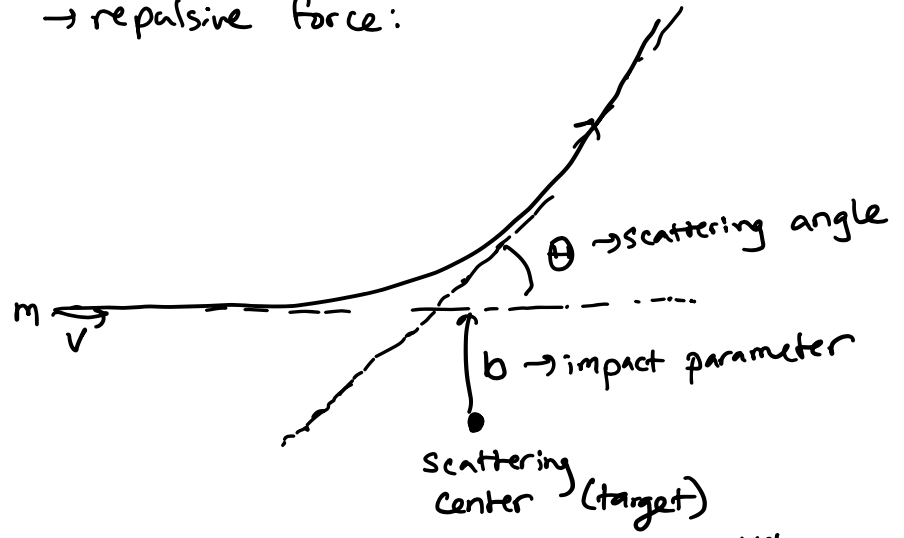 → repulsive force:
Θ → scattering angle
m
v
b → impact parameter
scattering
center (target)